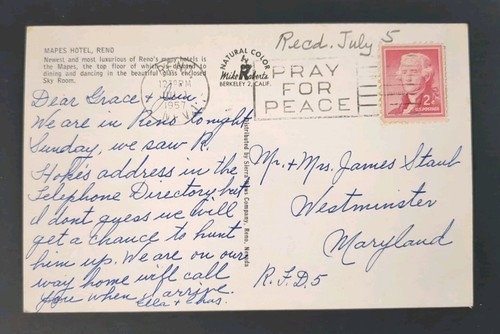 MAPES HOTEL, RENO
Newest and most luxurious of Reno's many hotels is
the Mapes, the top floor of which is devoted to
dining and dancing in the beautiful glass enclosed
Sky Room.
Dear Grace +
We are in Reno tonight
Sunday, we saw R.
Hokes address in the
Telephone Directory but
I dont guess we will
get a chance to hunt
him up. We are on our
way home will call
you when I arrive.
Ella + Chas.
NATURAL COLOR
H
R
Mike Roberts
BERKELEY 2, CALIF.
Distributed by Sierra News Company, Reno, Nevada
RENO
1957
NEV.
PRAY
FOR
PEACE
Recd. July 5
2¢
U.S. POSTAGE
Mr. + Mrs. James Staub
Westminster
Maryland
R.F.D. 5